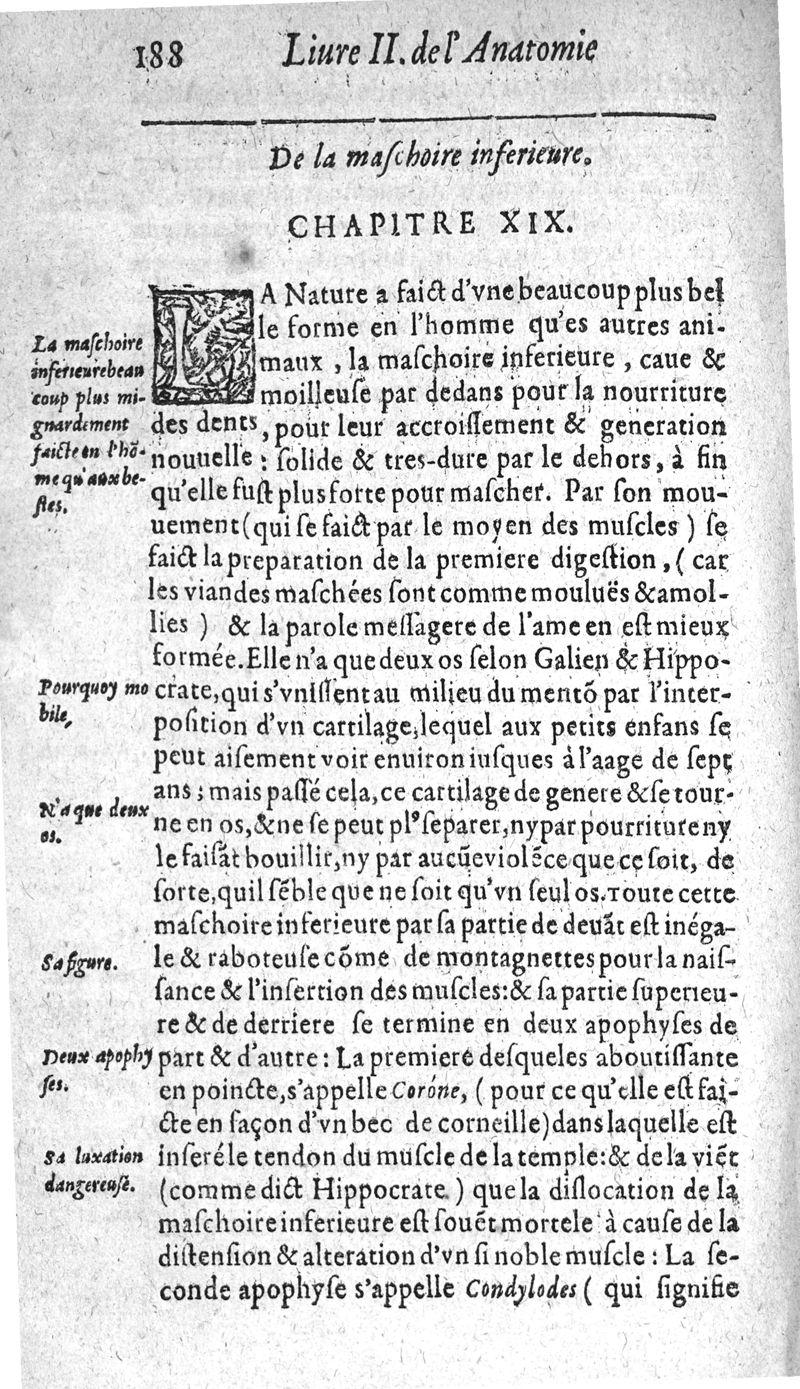 188 Liure II. de l'Anatomie
De la maſchoire inferieure.
CHAPITRE XIX.
LA Nature a faict d'vne beaucoup plus bel
le forme en l'homme qu'es autres ani-
maux, la maſchoire inferieure, caue &
moilleuſe par dedans pour la nourriture
des dents, pour leur accroiſſement & generation
nouuelle: ſolide & tres-dure par le dehors, à fin
qu'elle fuſt plus forte pour maſcher. Par ſon mou-
uement (qui ſe faict par le moyen des muſcles) ſe
faict la preparation de la premiere digeſtion, (car
les viandes maſchées ſont comme mouluës & amol-
lies) & la parole meſſagere de l'ame en eſt mieux
formée. Elle n'a que deux os ſelon Galien & Hippo-
crate, qui s'vniſſent au milieu du mentõ par l'inter-
poſition d'vn cartilage, lequel aux petits enfans ſe
peut aiſement voir enuiron iuſques à l'aage de ſept
ans; mais paſſé cela, ce cartilage de genere & ſe tour-
ne en os, & ne ſe peut plꝰ ſeparer, ny par pourriture ny
le faiſãt bouillir, ny par aucũe violẽce que ce ſoit, de
ſorte, quil ſẽble que ne ſoit qu'vn ſeul os. Toute cette
maſchoire inferieure par ſa partie de deuãt eſt inéga-
le & raboteuſe cõme de montagnettes pour la naiſ-
ſance & l'inſertion des muſcles: & ſa partie ſuperieu-
re & de derriere ſe termine en deux apophyſes de
part & d'autre: La premiere deſqueles aboutiſſante
en poincte, s'appelle Coróne, (pour ce qu'elle eſt fai-
cte en façon d'vn bec de corneille) dans laquelle eſt
inſeré le tendon du muſcle de la temple: & de la viẽt
(comme dict Hippocrate) que la diſlocation de la
maſchoire inferieure eſt ſouẽt mortele à cauſe de la
diſtenſion & alteration d'vn ſi noble muſcle: La ſe-
conde apophyſe s'appelle Condylodes (qui ſignifie
La maſchoire
inferieure beau
coup plus mi-
gnardement
faicte en l'hõ-
me qu'aux be-
ſtes.
Pourquoy mo
bile,
N'a que deux
os.
Sa figure.
Deux apophy
ſes.
Sa luxation
dangereuſe.